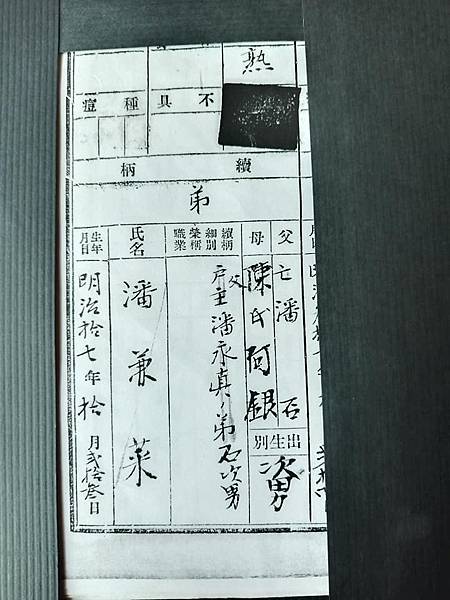 熟
不具
種痘
續柄
弟
父 亡潘石
母 陳氏阿銀
出生別
次男
續柄細別榮稱職業
父
戶主潘永真ノ弟石次男
氏名
潘兼萊
生年月日
明治拾七年拾月貳拾叁日